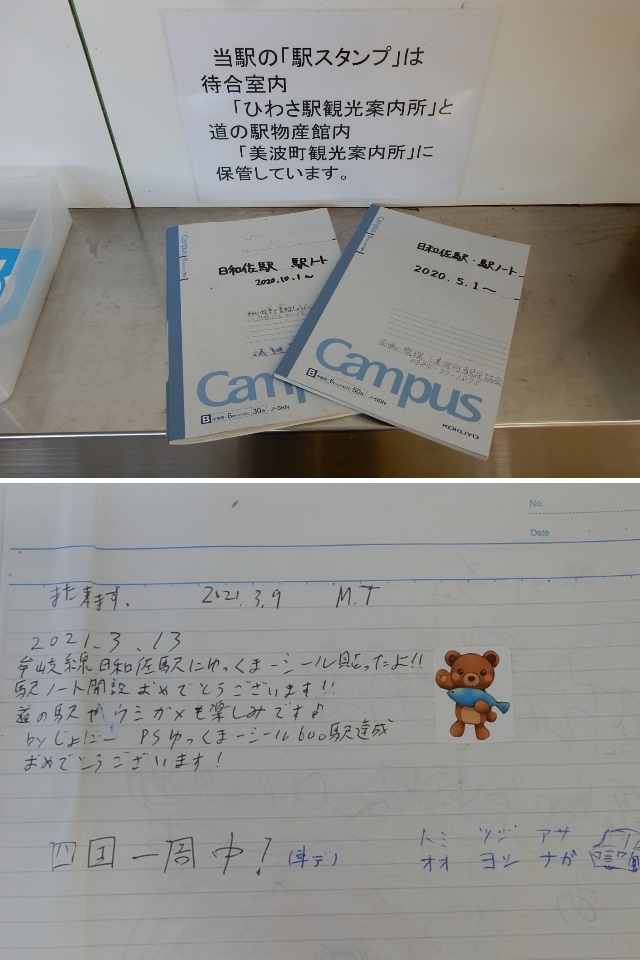 当駅の「駅スタンプ」は
待合室内
「ひわさ駅観光案内所」と
道の駅物産館内
「美波町観光案内所」に
保管しています。
Campus
日和佐駅 駅ノート
2020.10.1～
Campus
B 6mm 30枚 ノ-3BN
Campus
日和佐駅 駅ノート
2020.5.1～
企画・管理
Campus
B 6mm 50枚 ノ-5BN
KOKUYO
No.
Date
また来ます。 2021.3.9 M.T
2021.3.13
牟岐線日和佐駅にゆっくまーシール貼ったよ!!
駅ノート開設おめでとうございます!!
道の駅やウミガメも楽しみです♪
byじょにー PSゆっくまーシール600駅達成
おめでとうございます!
四国一周中! (車デ)
トミ ツジ アサ
オオ ヨシ ナガ